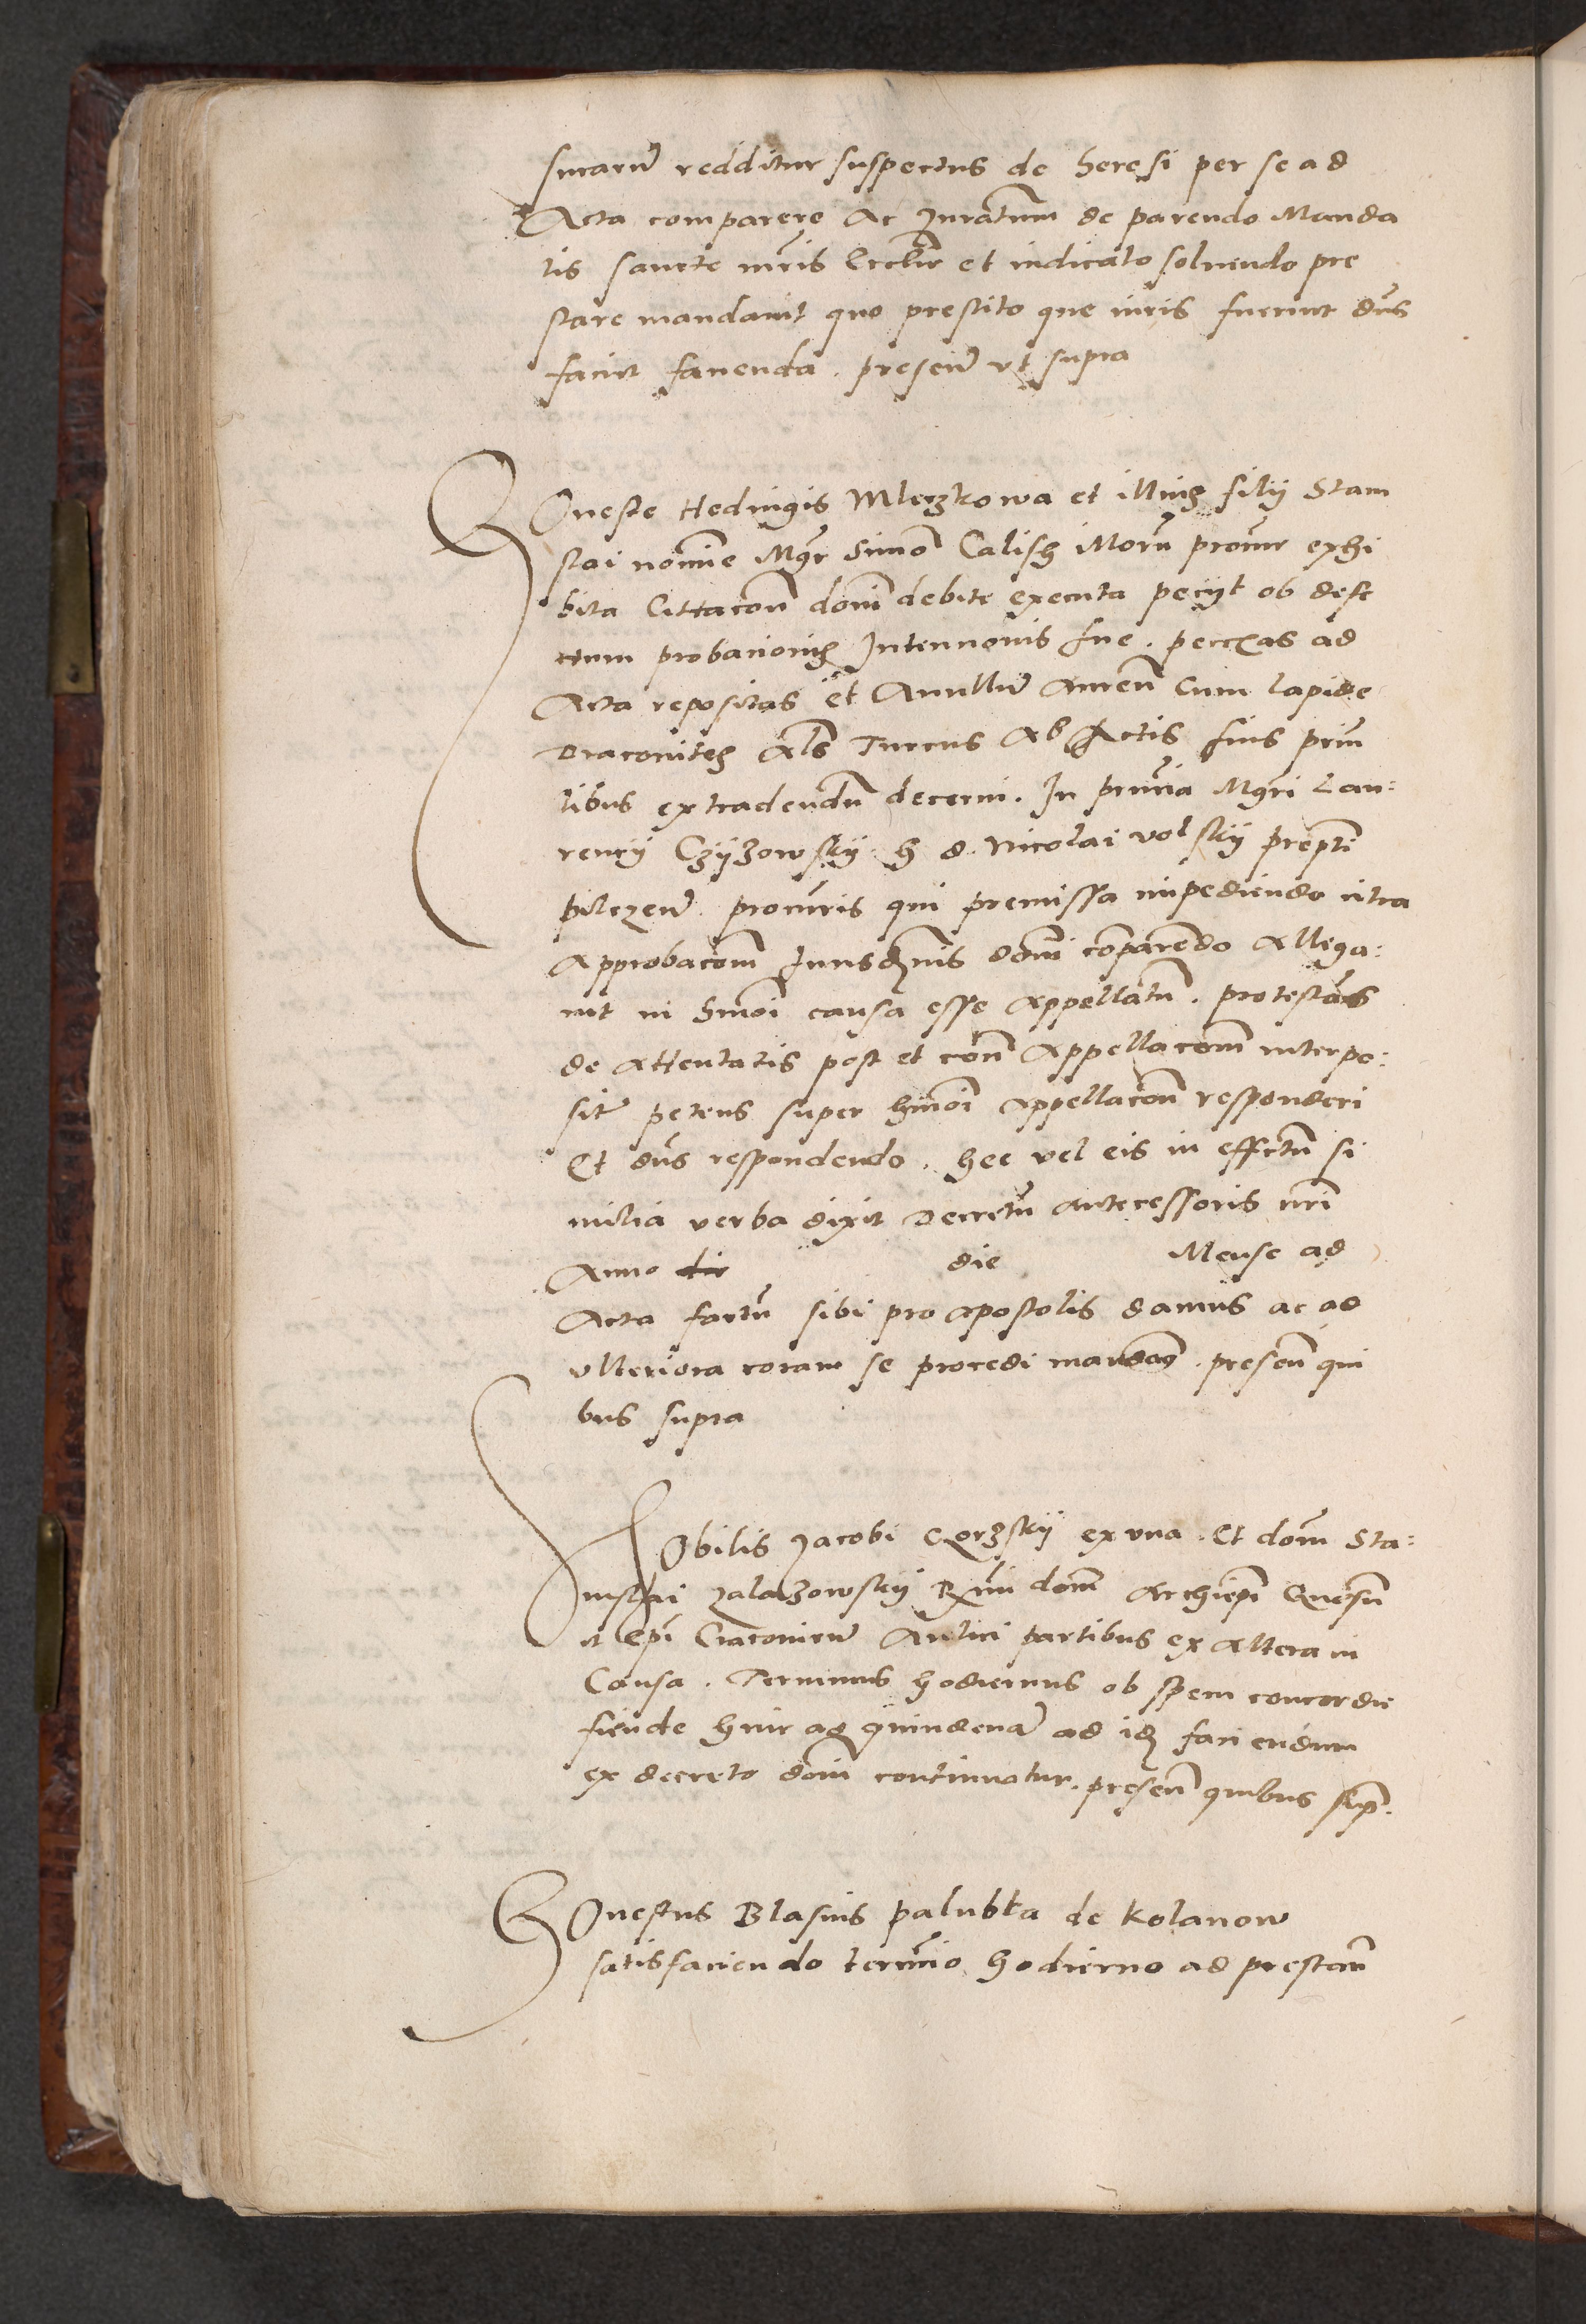 surarum redditur suspectus de heresi per se ad
Acta comparere Ac Juratum de parendo Manda
tis sancte mris Ecclie et iudicato soluendo pre
stare mandauit quo prestito que iuris fuerint dns
faciet facienda. presen vt supra
Honeste Heduigis Mleczkowa et illius filij Stani
slai nomine Mgr Simon Calish illorum procur exhi
bita Cittacom doni debite executa pecijt ob defe
ctum probacionis Intencionis sue. ad
Acta repositas et Anullum Aureum cum lapide
Draconites Als Turcus Ab Actis suis prin
tibus extradendum decerni. In prncia Mgri Lau-
rencij Czyzowskij G d. Nicolai volskij prepti
pilczen. procuris qui premissa impediendo citra
Approbacom Jurisdnis doni comparendo Allega-
uit in hmoi causa esse Appellatum. protestans
de Attentatis post et con Appellacom interpo-
sit petens super hmoi Appellacom responderi
Et dns respondendo. hec vel eis in effectu si
milia verba dixit Decretum antecessoris nri
Anno die Mense ad
Acta factum sibi pro apostolis damus ac ad
vlteriora coram se procedi mandam. presen qui
bus supra
Nobilis Jacobi Gorzskij ex vna. Et dom Sta-
nislai Zalazowskij Rmi dom Archiepi Gnesn
et Epi Cracouien Aulici partibus ex Altera in
Causa. Terminus hodiernus ob spem concordie
fiende hinc ad quindenam ad id faciendum
ex decreto doni continuatur. presen quibus sup.
Honestus Blasius palubka de Kolanow
satisfaciendo termino hodierno ad prestan